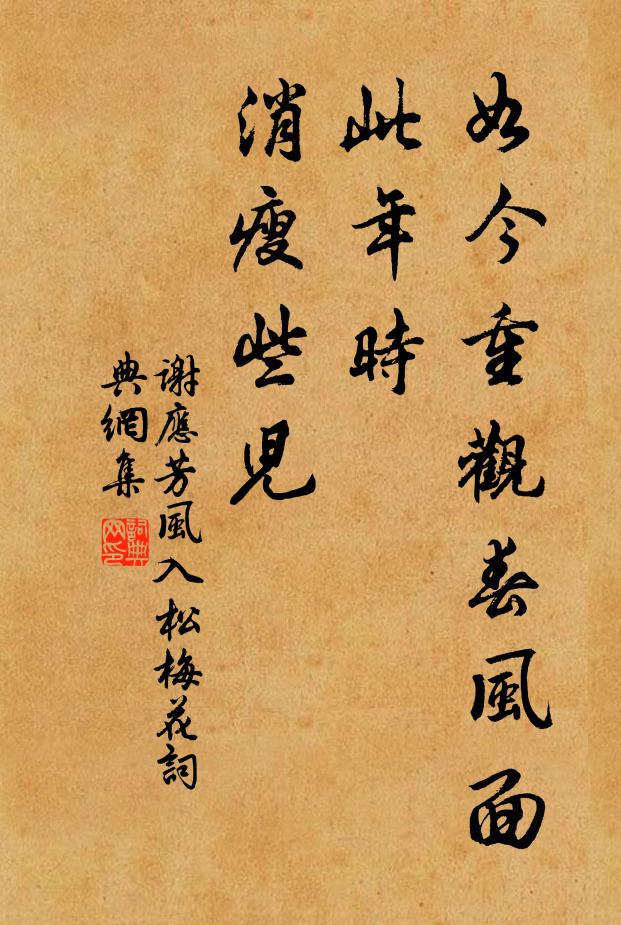 如今重觀春風面
此年時
消瘦些兒
謝應芳風入松梅花詞
典網集
詞典网印